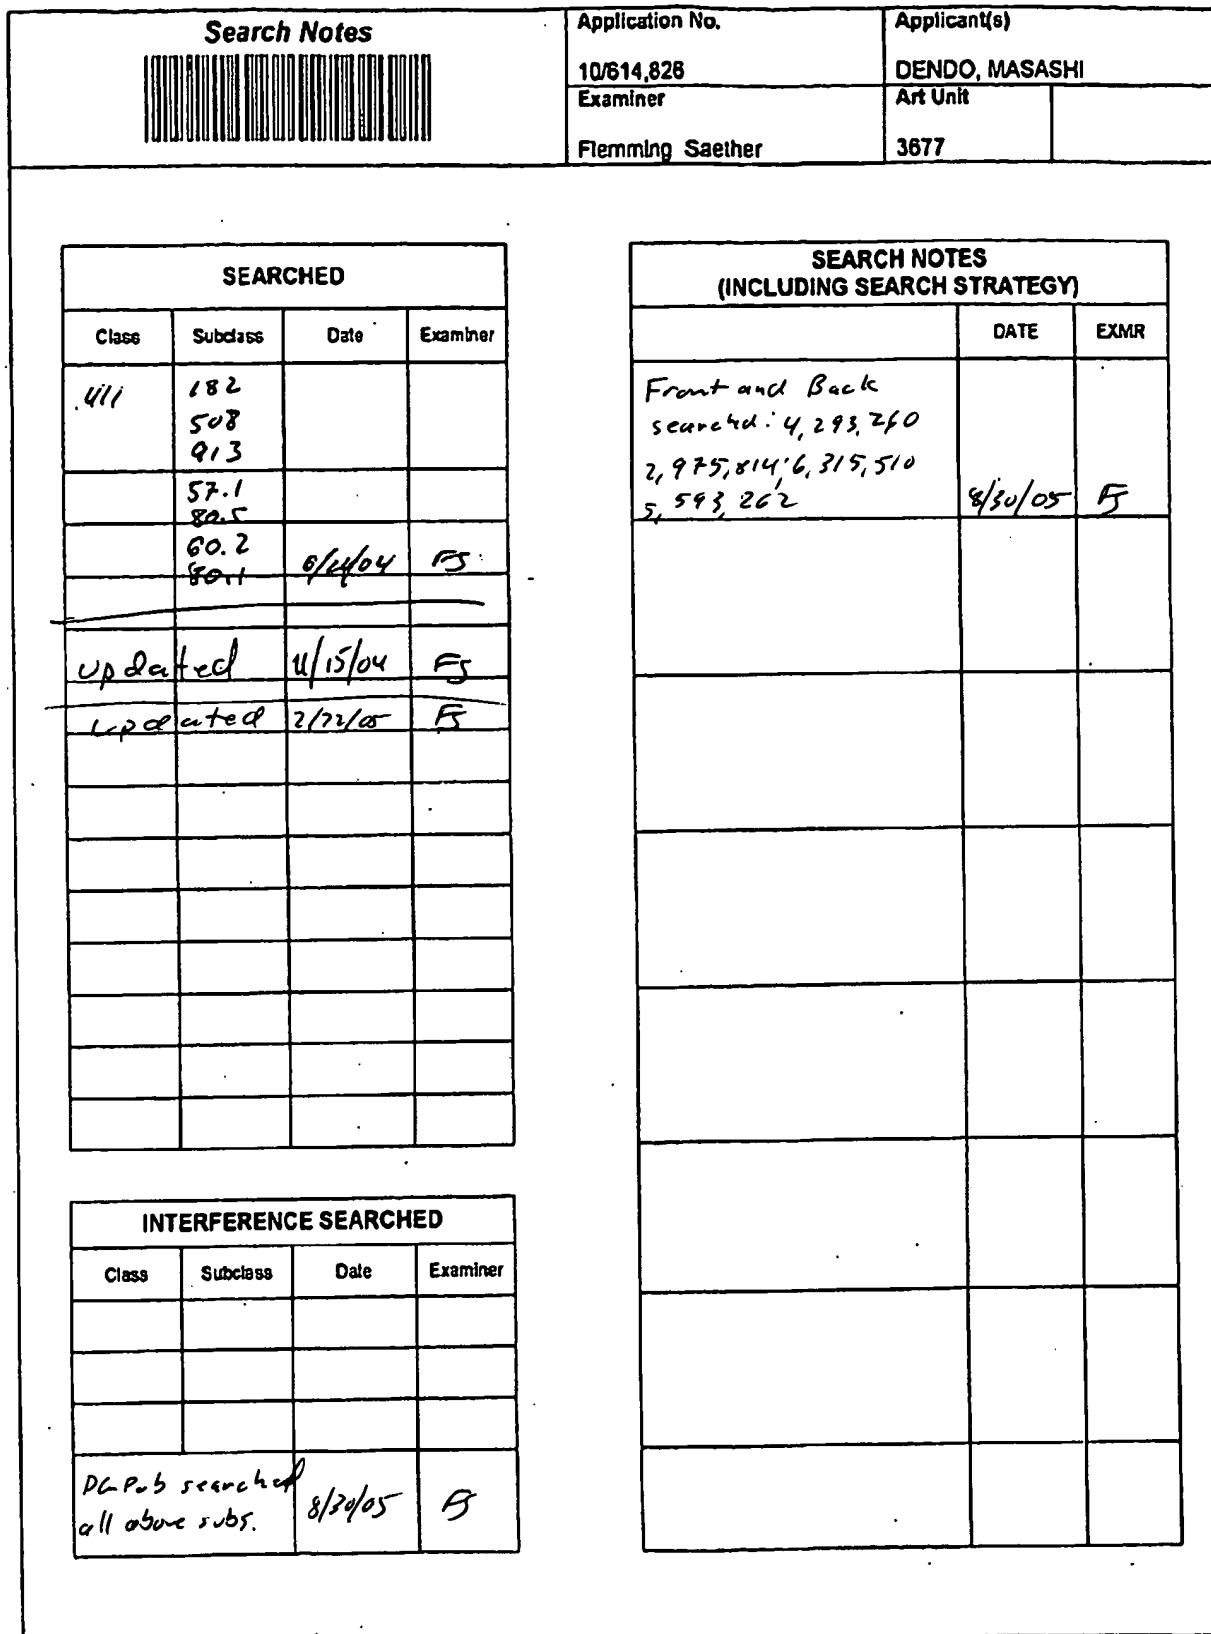 Search Notes
Application No.
10/614,826
Applicant(s)
DENDO, MASASHI
Examiner
Flemming Saether
Art Unit
3677
SEARCHED
Class Subclass Date Examiner
411 182
508
913
57.1
80.5
60.2
80.1 FS
updated 11/15/04 FS
updated 2/22/05 FS
INTERFERENCE SEARCHED
Class Subclass Date Examiner
PGPub searched
all above subs. 8/30/05 FS
SEARCH NOTES
(INCLUDING SEARCH STRATEGY)
DATE EXMR
Front and Back
searched: 4,293,260
2,975,814; 6,315,510
5,593,262 8/30/05 FS